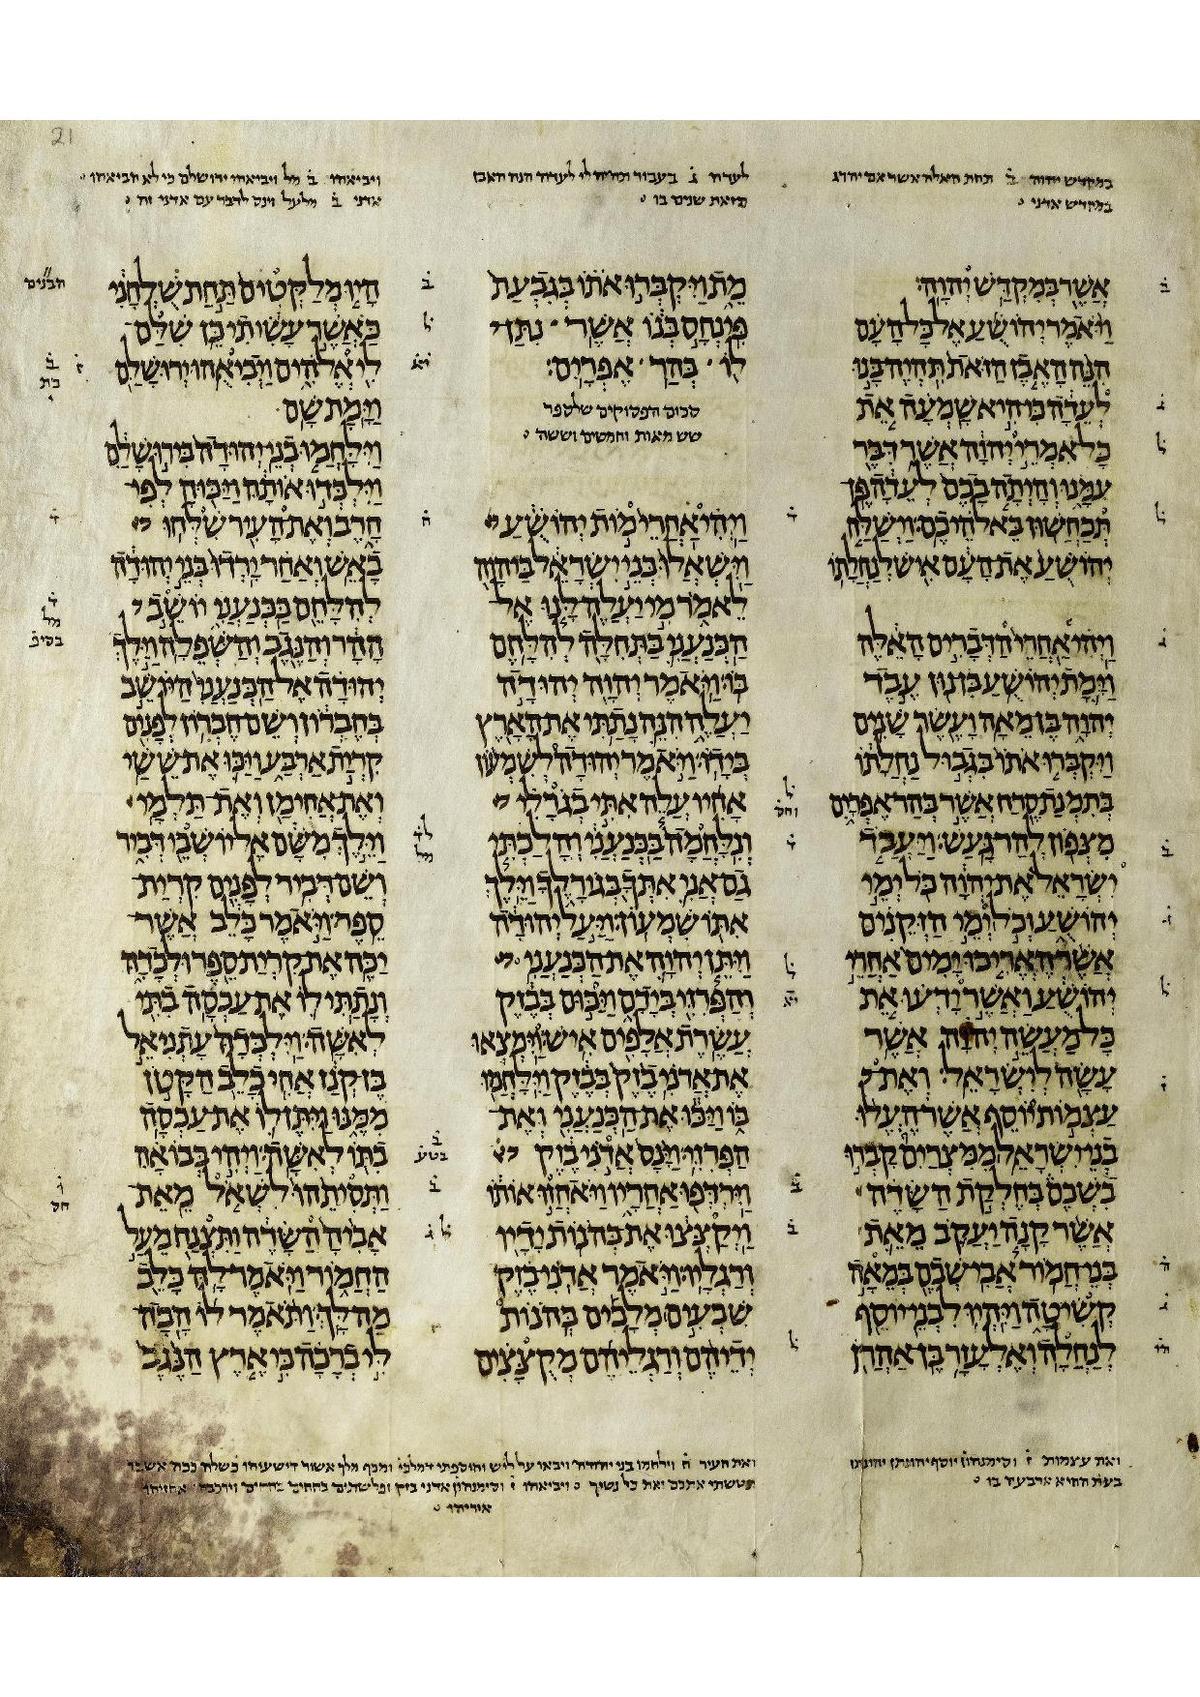 במקדש יהוה ב̇ תחת האלה אשר אם יהרג
במקדש אדני
לעדה ג̇ בעבור תהיה לי לעדה הנה האבן
הזאת שנים בו
ויביאהו ב̇ מל ויביאהו ירושלם כי לא הביאהו
אדני ב̇ מלעל וינס לדבר עם אדני זה
אשר במקדש יהוה
ויאמר יהושע אל כל העם
הנה האבן הזאת תהיה בנו
לעדה כי היא שמעה את
כל אמרי יהוה אשר דבר
עמנו והיתה בכם לעדה פן
תכחשון באלהיכם וישלח
יהושע את העם איש לנחלתו
ויהי אחרי הדברים האלה
וימת יהושע בן נון עבד
יהוה בן מאה ועשר שנים
ויקברו אתו בגבול נחלתו
בתמנת סרח אשר בהר אפרים
מצפון להר געש ויעבד
ישראל את יהוה כל ימי
יהושע וכל ימי הזקנים
אשר האריכו ימים אחרי
יהושע ואשר ידעו את
כל מעשה יהוה אשר
עשה לישראל ואת
עצמות יוסף אשר העלו
בני ישראל ממצרים קברו
בשכם בחלקת השדה
אשר קנה יעקב מאת
בני חמור אבי שכם במאה
קשיטה ויהיו לבני יוסף
לנחלה ואלעזר בן אהרן
מת ויקברו אתו בגבעת
פינחס בנו אשר נתן
לו בהר אפרים
סכום הפסוקים שלספר
שש מאות וחמשים וששה
ויהי אחרי מות יהושע
וישאלו בני ישראל ביהוה
לאמר מי יעלה לנו אל
הכנעני בתחלה להלחם
בו ויאמר יהוה יהודה
יעלה הנה נתתי את הארץ
בידו ויאמר יהודה לשמעון
אחיו עלה אתי בגרלי
ונלחמה בכנעני והלכתי
גם אני אתך בגורלך וילך
אתו שמעון ויעל יהודה
ויתן יהוה את הכנעני
והפרזי בידם ויכום בבזק
עשרת אלפים איש וימצאו
את אדני בזק בבזק וילחמו
בו ויכו את הכנעני ואת
הפרזי וינס אדני בזק
וירדפו אחריו ויאחזו אותו
ויקצצו את בהנות ידיו
ורגליו ויאמר אדני בזק
שבעים מלכים בהנות
ידיהם ורגליהם מקצצים
היו מלקטים תחת שלחני
כאשר עשיתי כן שלם
לי אלהים ויביאהו ירושלם
וימת שם
וילחמו בני יהודה בירושלם
וילכדו אותה ויכוה לפי
חרב ואת העיר שלחו
באש ואחר ירדו בני יהודה
להלחם בכנעני יושב
ההר והנגב והשפלה וילך
יהודה אל הכנעני היושב
בחברון ושם חברון לפנים
קרית ארבע ויכו את ששי
ואת אחימן ואת תלמי
וילך משם אל יושבי דביר
ושם דביר לפנים קרית
ספר ויאמר כלב אשר
יכה את קרית ספר ולכדה
ונתתי לו את עכסה בתי
לאשה וילכדה עתניאל
בן קנז אחי כלב הקטן
ממנו ויתן לו את עכסה
בתו לאשה ויהי בבואה
ותסיתהו לשאל מאת
אביה השדה ותצנח מעל
החמור ויאמר לה כלב
מה לך ותאמר לו הבה
לי ברכה כי ארץ הנגב
ואת עצמות
ואת העיר ח̇ וילחמו בני יהודה ויבאו על ליש